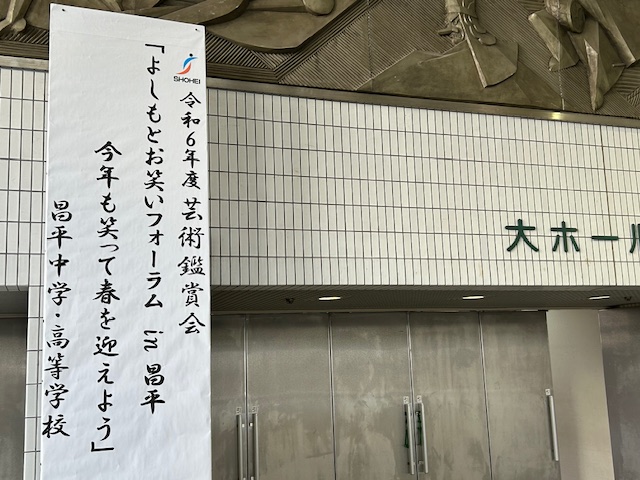 SHOHEI
令和6年度 芸術鑑賞会
「よしもとお笑いフォーラム in 昌平
今年も笑って春を迎えよう」
昌平中学・高等学校
大ホール